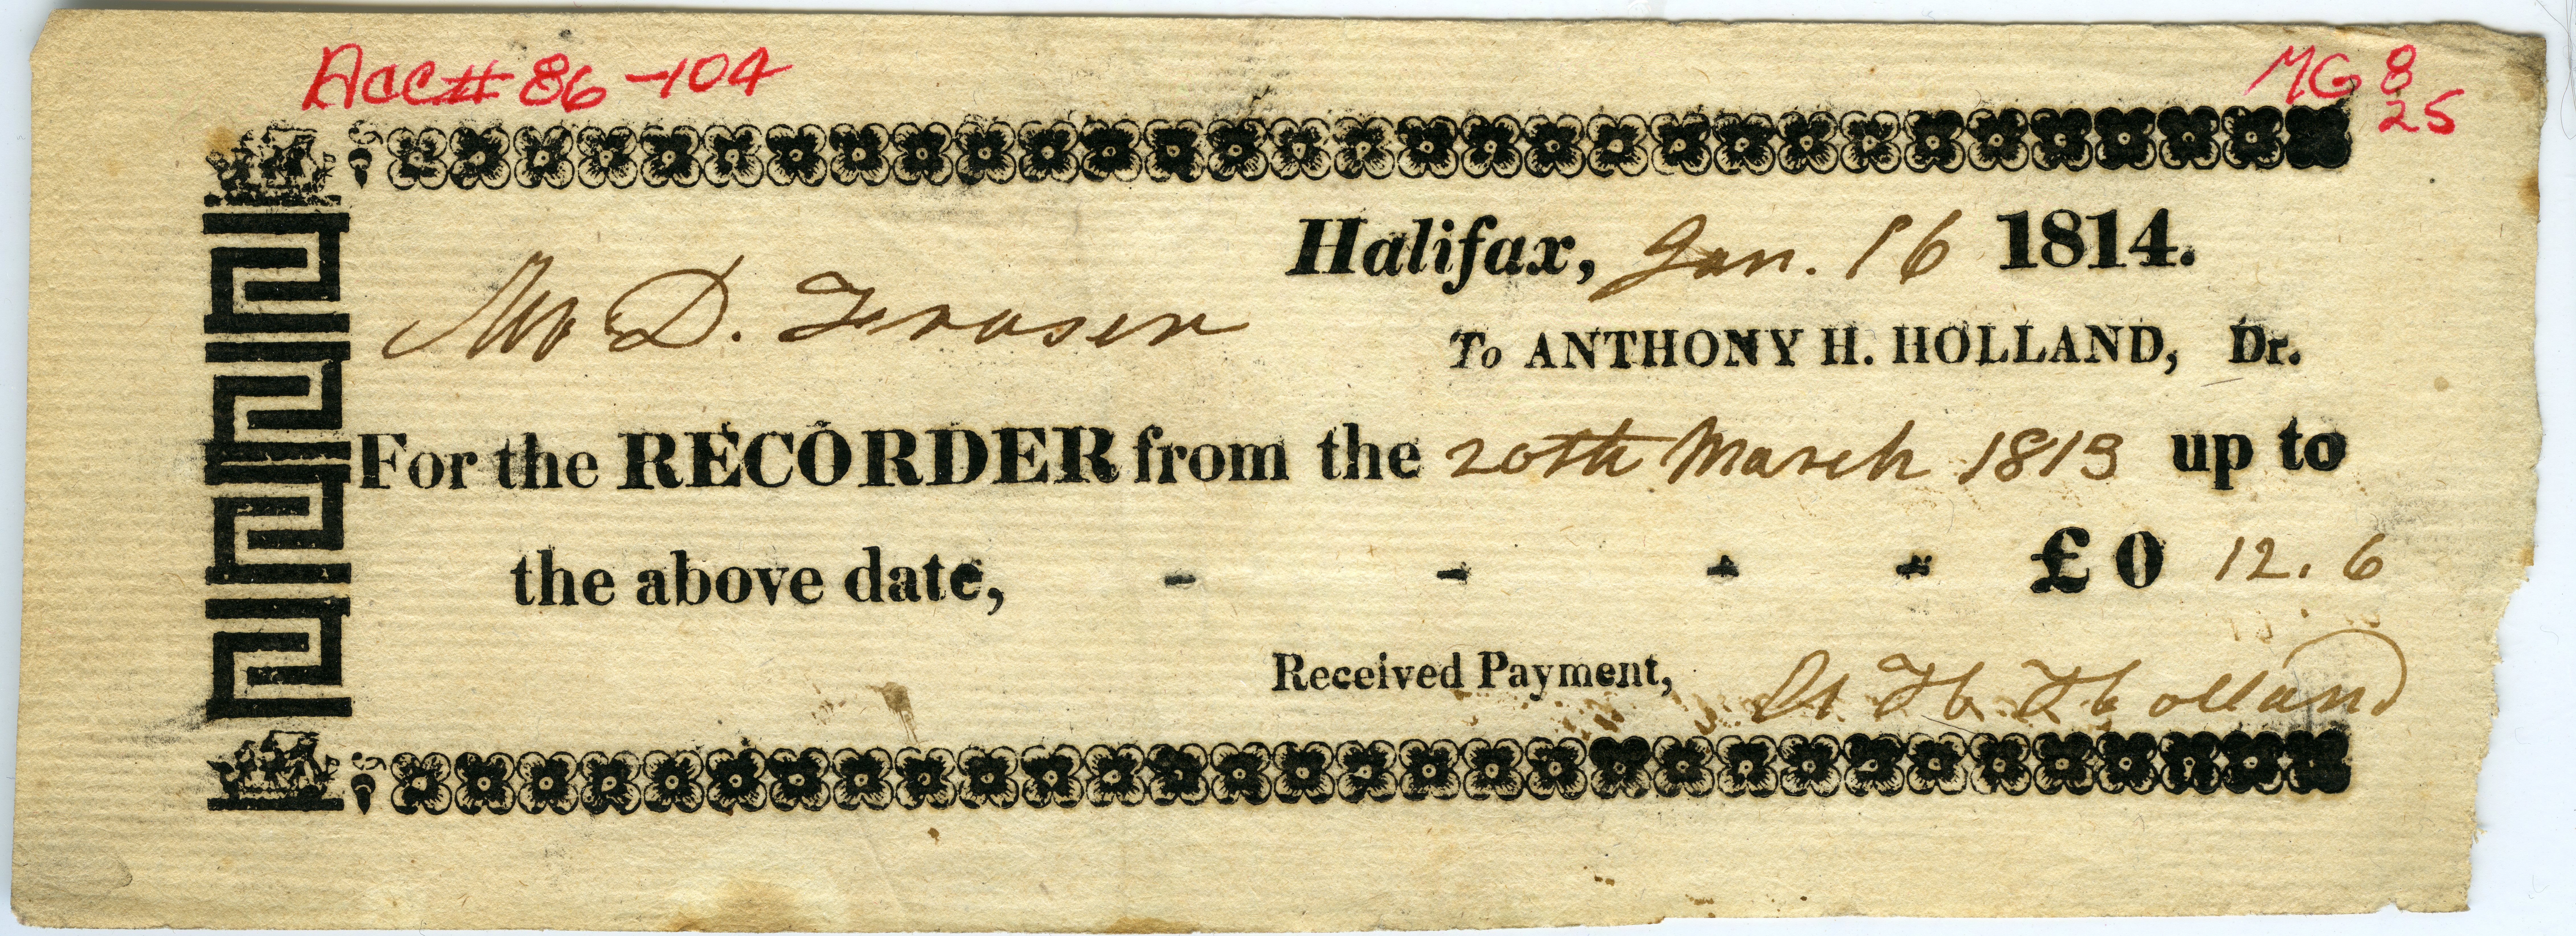 Acc# 86-104
MG 8
25
Halifax, Jan. 16 1814.
Mr D. Fraser
To ANTHONY H. HOLLAND, Dr.
For the RECORDER from the 20th March 1813 up to
the above date, - - - - £ 0 12. 6
Received Payment, A H Holland